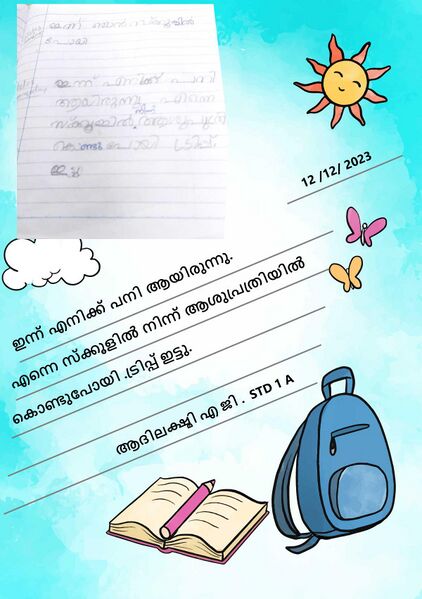 ഇന്ന് ഞാൻ സ്കൂളിൽ
പോയി
ഇന്ന് എനിക്ക് പനി
ആയിരുന്നു. എന്നെ
സ്ക്കൂളിൽ നിന്ന് ആശുപത്രി
കൊണ്ടു പോയി ട്രിപ്പ്
ഇട്ടു
12 /12/ 2023
ഇന്ന് എനിക്ക് പനി ആയിരുന്നു.
എന്നെ സ്ക്കൂളിൽ നിന്ന് ആശുപ്രത്രിയിൽ
കൊണ്ടുപോയി .ട്രിപ്പ് ഇട്ടു.
ആദിലക്ഷ്മി എ ജി . STD 1 A